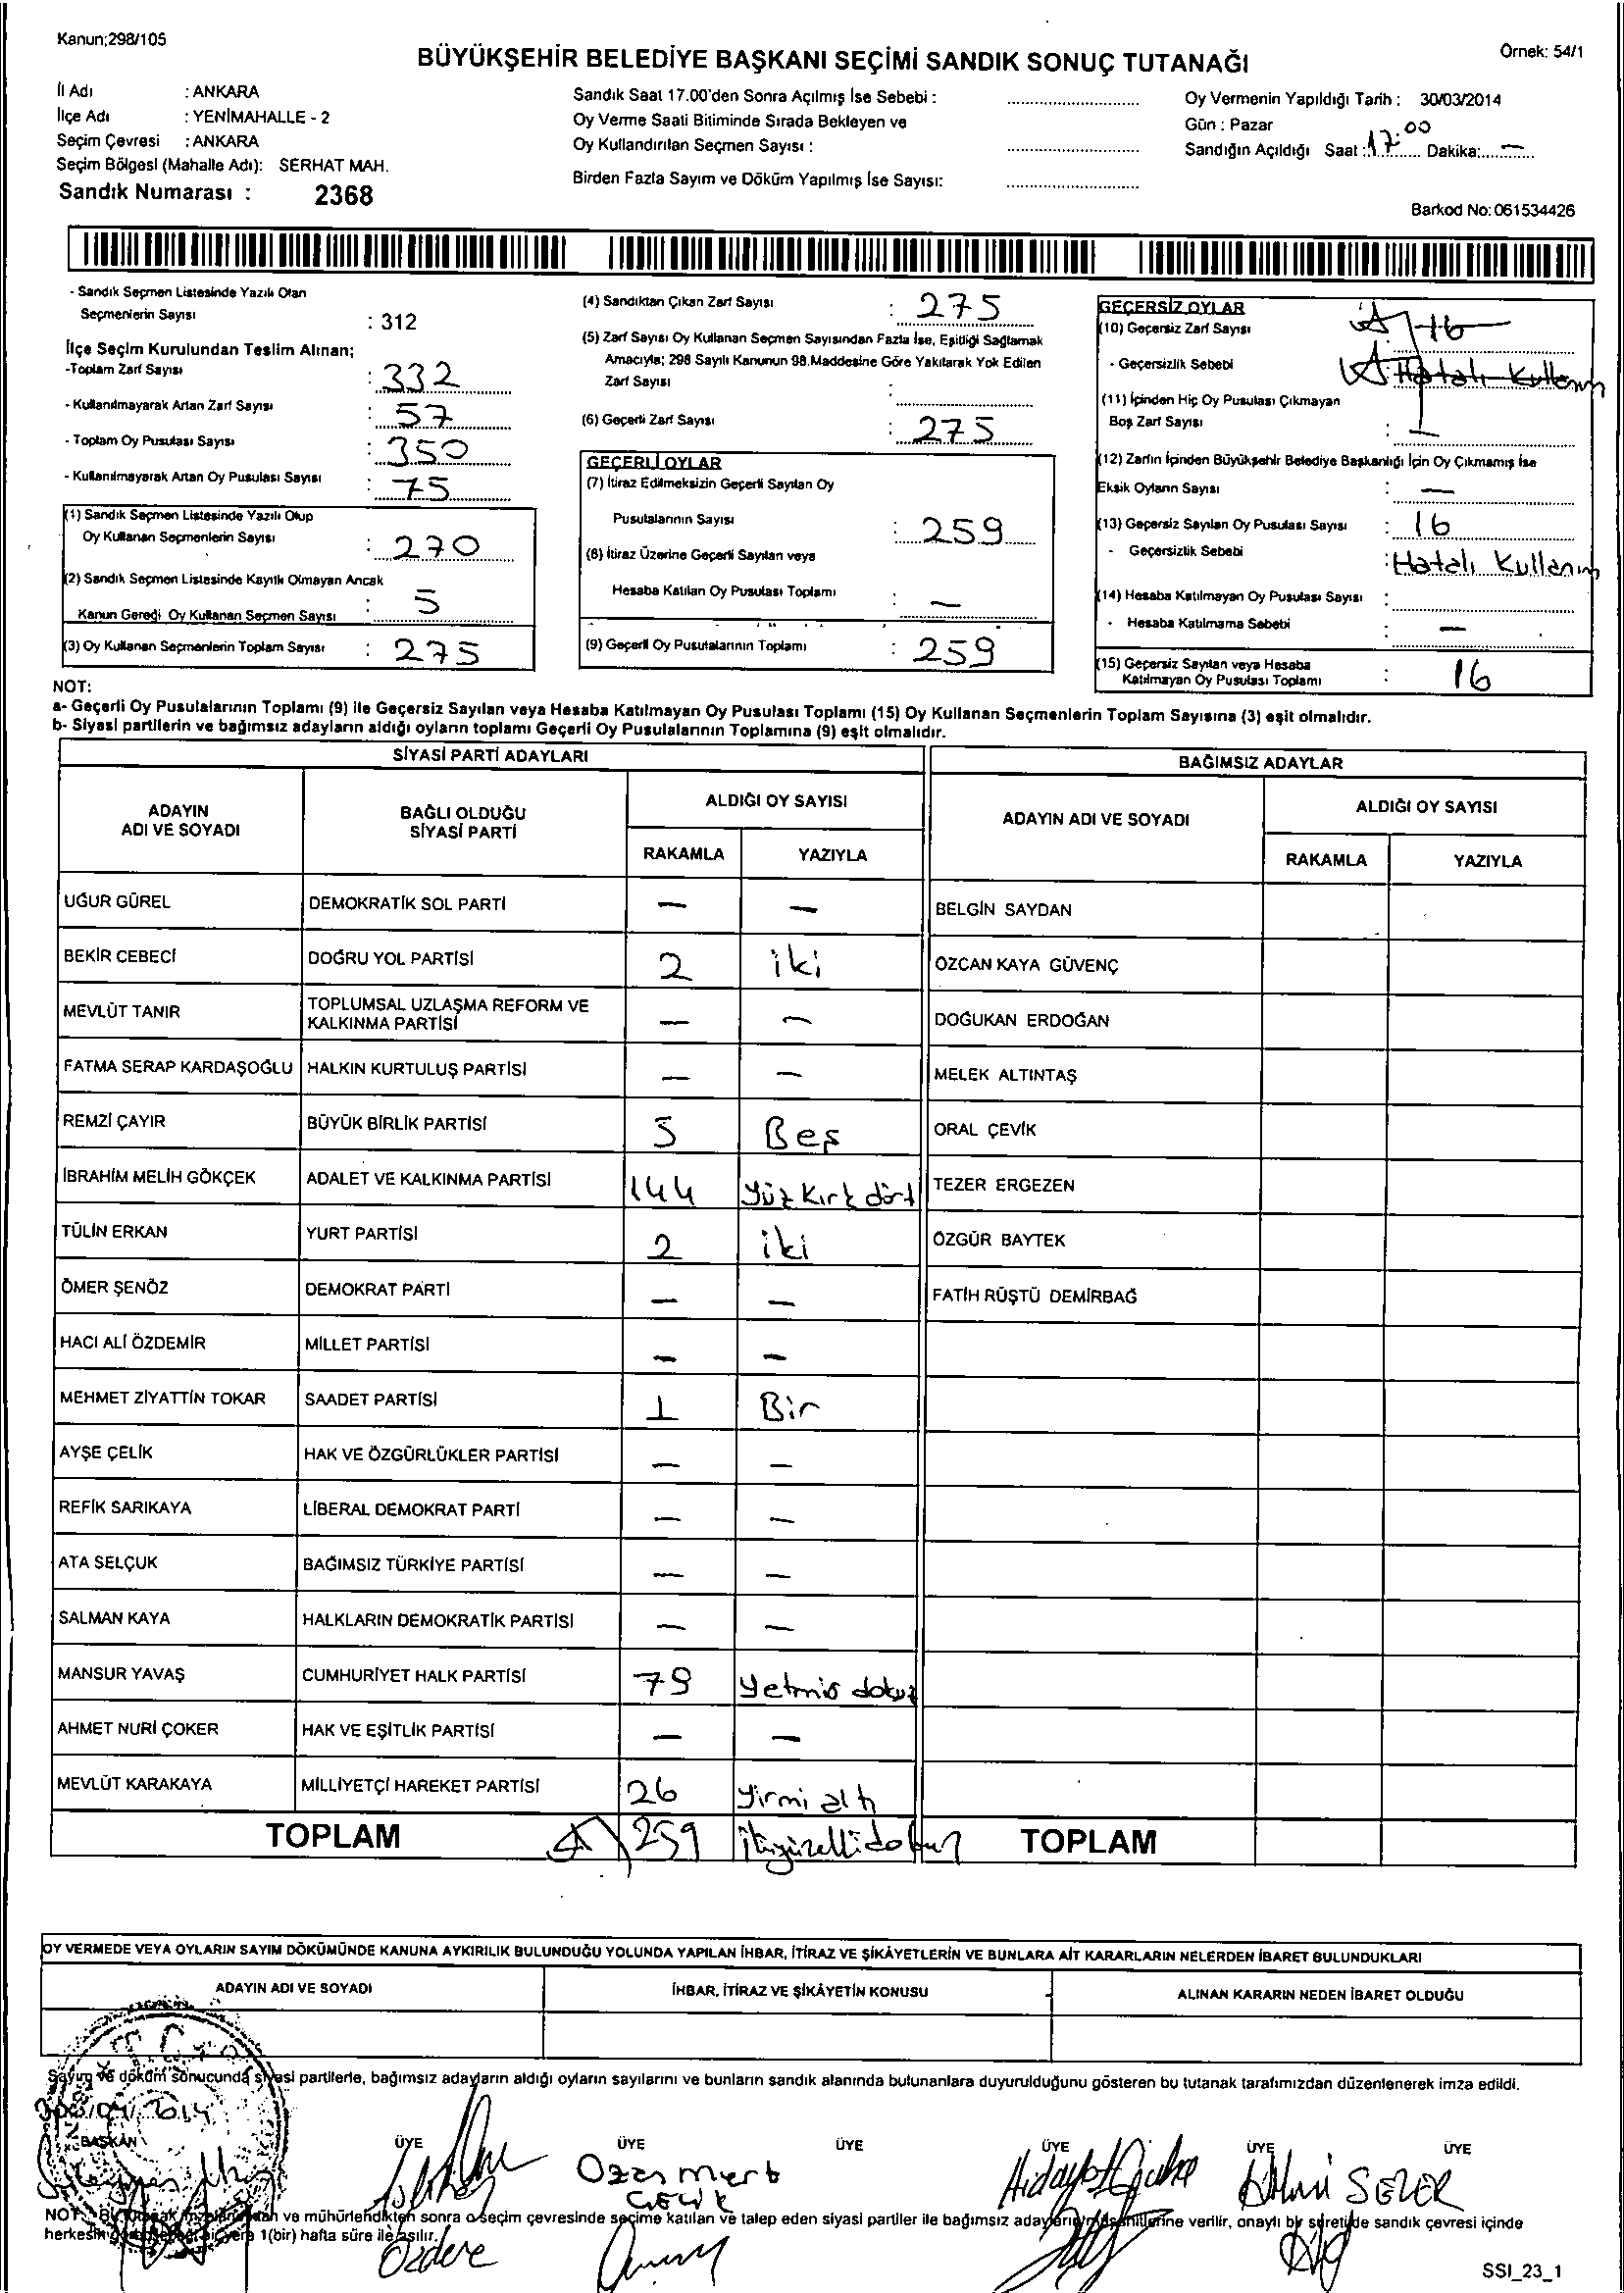 Kanun;298/105
Örnek: 54/1
BÜYÜKŞEHİR BELEDİYE BAŞKANI SEÇİMİ SANDIK SONUÇ TUTANAĞI
İl Adı : ANKARA
İlçe Adı : YENİMAHALLE - 2
Seçim Çevresi : ANKARA
Seçim Bölgesi (Mahalle Adı): SERHAT MAH.
Sandık Numarası : 2368
Sandık Saat 17.00'den Sonra Açılmış İse Sebebi :
Oy Verme Saati Bitiminde Sırada Bekleyen ve
Oy Kullandırılan Seçmen Sayısı :
Birden Fazla Sayım ve Döküm Yapılmış İse Sayısı:
Oy Vermenin Yapıldığı Tarih : 30/03/2014
Gün : Pazar
Sandığın Açıldığı Saat : 17:00 Dakika: —
Barkod No: 061534426
- Sandık Seçmen Listesinde Yazılı Olan
Seçmenlerin Sayısı : 312
İlçe Seçim Kurulundan Teslim Alınan;
-Toplam Zarf Sayısı : 332
- Kullanılmayarak Artan Zarf Sayısı : 57
- Toplam Oy Pusulası Sayısı : 350
- Kullanılmayarak Artan Oy Pusulası Sayısı : 75
(1) Sandık Seçmen Listesinde Yazılı Olup
Oy Kullanan Seçmenlerin Sayısı : 270
(2) Sandık Seçmen Listesinde Kayıtlı Olmayan Ancak
Kanun Gereği Oy Kullanan Seçmen Sayısı : 5
(3) Oy Kullanan Seçmenlerin Toplam Sayısı : 275
(4) Sandıktan Çıkan Zarf Sayısı : 275
(5) Zarf Sayısı Oy Kullanan Seçmen Sayısından Fazla İse, Eşitliği Sağlamak
Amacıyla; 298 Sayılı Kanunun 98.Maddesine Göre Yakılarak Yok Edilen
Zarf Sayısı :
(6) Geçerli Zarf Sayısı : 275
GEÇERLİ OYLAR
(7) İtiraz Edilmeksizin Geçerli Sayılan Oy
Pusulalarının Sayısı : 259
(8) İtiraz Üzerine Geçerli Sayılan veya
Hesaba Katılan Oy Pusulası Toplamı : —
(9) Geçerli Oy Pusulalarının Toplamı : 259
GEÇERSİZ OYLAR
(10) Geçersiz Zarf Sayısı : 16
- Geçersizlik Sebebi : Hatalı Kullanım
(11) İçinden Hiç Oy Pusulası Çıkmayan
Boş Zarf Sayısı :
(12) Zarfın İçinden Büyükşehir Belediye Başkanlığı İçin Oy Çıkmamış İse
Eksik Oyların Sayısı : —
(13) Geçersiz Sayılan Oy Pusulası Sayısı : 16
- Geçersizlik Sebebi : Hatalı Kullanım
(14) Hesaba Katılmayan Oy Pusulası Sayısı :
- Hesaba Katılmama Sebebi : —
(15) Geçersiz Sayılan veya Hesaba
Katılmayan Oy Pusulası Toplamı : 16
NOT:
a- Geçerli Oy Pusulalarının Toplamı (9) ile Geçersiz Sayılan veya Hesaba Katılmayan Oy Pusulası Toplamı (15) Oy Kullanan Seçmenlerin Toplam Sayısına (3) eşit olmalıdır.
b- Siyasi partilerin ve bağımsız adayların aldığı oyların toplamı Geçerli Oy Pusulalarının Toplamına (9) eşit olmalıdır.
SİYASİ PARTİ ADAYLARI
ADAYIN ADI VE SOYADI BAĞLI OLDUĞU SİYASİ PARTİ ALDIĞI OY SAYISI
RAKAMLA YAZIYLA
UĞUR GÜREL DEMOKRATİK SOL PARTİ — —
BEKİR CEBECİ DOĞRU YOL PARTİSİ 2 iki
MEVLÜT TANIR TOPLUMSAL UZLAŞMA REFORM VE KALKINMA PARTİSİ — —
FATMA SERAP KARDAŞOĞLU HALKIN KURTULUŞ PARTİSİ — —
REMZİ ÇAYIR BÜYÜK BİRLİK PARTİSİ 5 Beş
İBRAHİM MELİH GÖKÇEK ADALET VE KALKINMA PARTİSİ 144 Yüz Kırk dört
TÜLİN ERKAN YURT PARTİSİ 2 iki
ÖMER ŞENÖZ DEMOKRAT PARTİ — —
HACI ALİ ÖZDEMİR MİLLET PARTİSİ — —
MEHMET ZİYATTİN TOKAR SAADET PARTİSİ 1 Bir
AYŞE ÇELİK HAK VE ÖZGÜRLÜKLER PARTİSİ — —
REFİK SARIKAYA LİBERAL DEMOKRAT PARTİ — —
ATA SELÇUK BAĞIMSIZ TÜRKİYE PARTİSİ — —
SALMAN KAYA HALKLARIN DEMOKRATİK PARTİSİ — —
MANSUR YAVAŞ CUMHURİYET HALK PARTİSİ 79 Yetmiş dokuz
AHMET NURİ ÇOKER HAK VE EŞİTLİK PARTİSİ — —
MEVLÜT KARAKAYA MİLLİYETÇİ HAREKET PARTİSİ 26 Yirmi altı
TOPLAM 259 ikiyüzellidokuz
BAĞIMSIZ ADAYLAR
ADAYIN ADI VE SOYADI ALDIĞI OY SAYISI
RAKAMLA YAZIYLA
BELGİN SAYDAN
ÖZCAN KAYA GÜVENÇ
DOĞUKAN ERDOĞAN
MELEK ALTINTAŞ
ORAL ÇEVİK
TEZER ERGEZEN
ÖZGÜR BAYTEK
FATİH RÜŞTÜ DEMİRBAĞ
TOPLAM
OY VERMEDE VEYA OYLARIN SAYIM DÖKÜMÜNDE KANUNA AYKIRILIK BULUNDUĞU YOLUNDA YAPILAN İHBAR, İTİRAZ VE ŞİKÂYETLERİN VE BUNLARA AİT KARARLARIN NELERDEN İBARET BULUNDUKLARI
ADAYIN ADI VE SOYADI İHBAR, İTİRAZ VE ŞİKÂYETİN KONUSU ALINAN KARARIN NEDEN İBARET OLDUĞU
Sayım ve döküm sonucunda siyasi partilerle, bağımsız adayların aldığı oyların sayılarını ve bunların sandık alanında bulunanlara duyurulduğunu gösteren bu tutanak tarafımızdan düzenlenerek imza edildi.
BAŞKAN ÜYE ÜYE ÜYE ÜYE ÜYE ÜYE
Ozan Mert
ÇELİK
SEZER
NOT: ve mühürlendikten sonra o seçim çevresinde seçime katılan ve talep eden siyasi partiler ile bağımsız verilir, onaylı bir sureti de sandık çevresi içinde
1(bir) hafta süre ile asılır.
Özdere
SSI_23_1